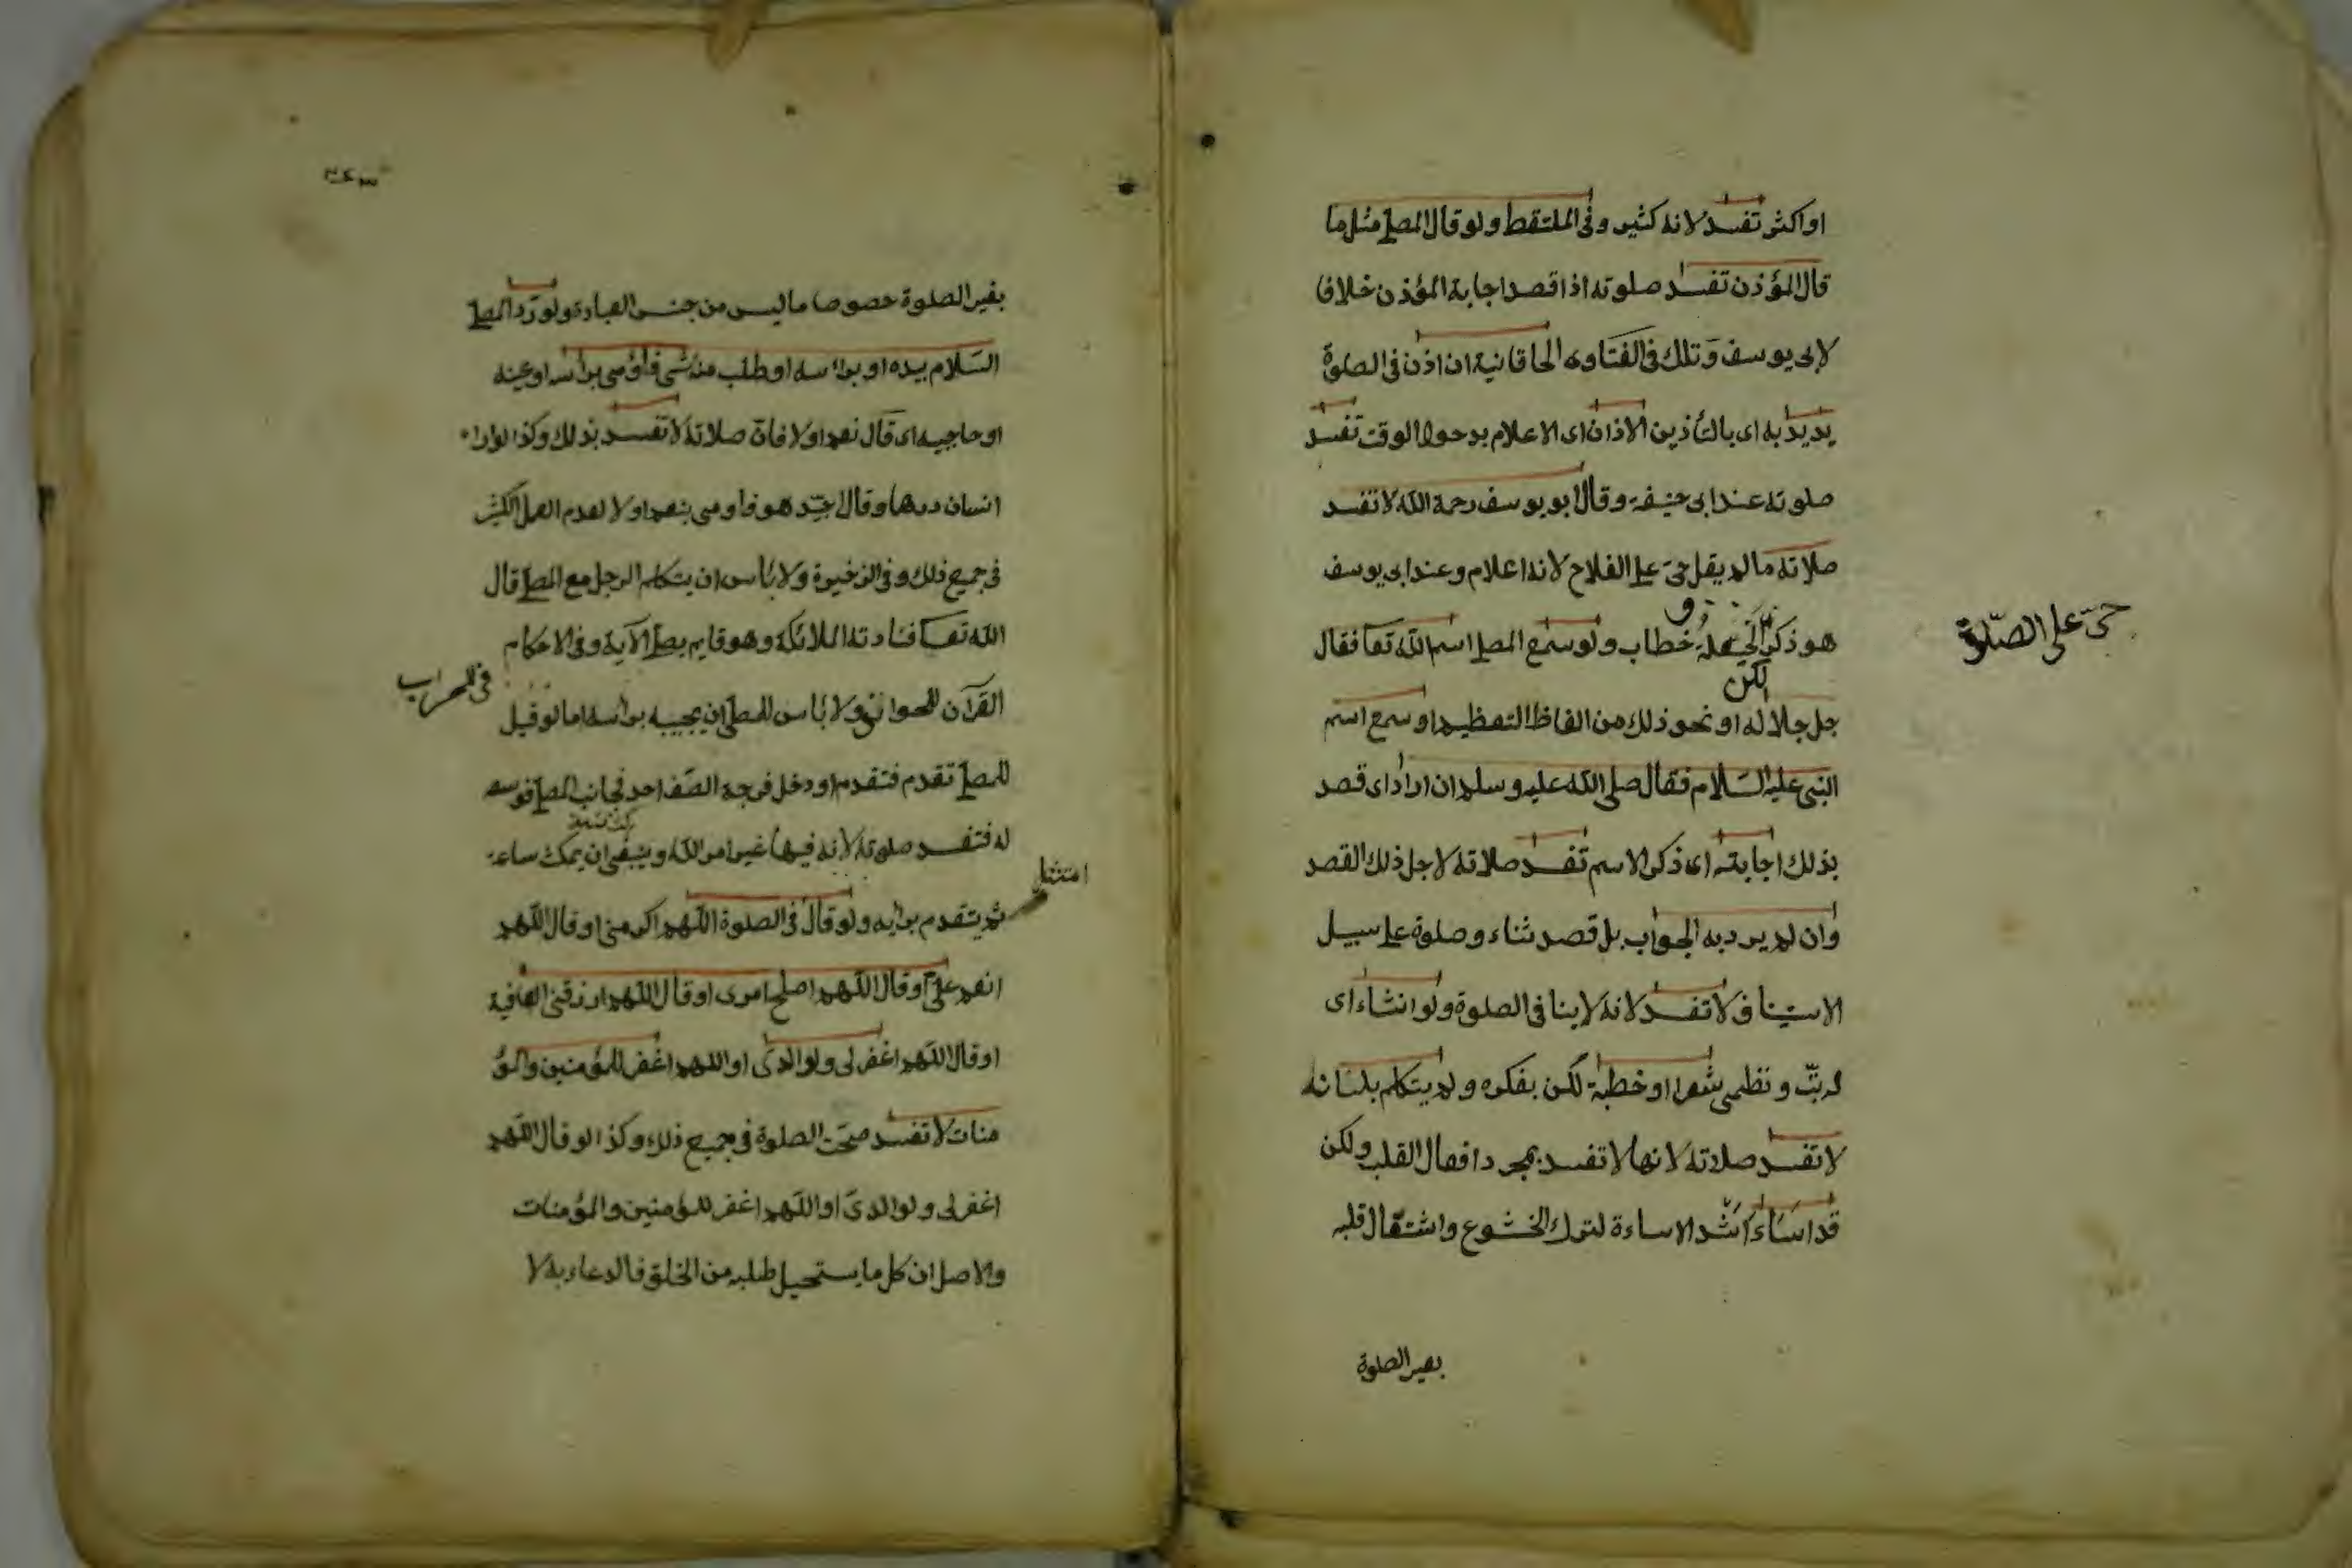 او اكثر تفسد لانه كثير وفى الملتقط ولو قال المصلى مثل ما
قال المؤذن تفسد صلوته اذا قصد اجابة المؤذن خلافا
لابى يوسف وتلك فى الفتاوى الخاقانية ان اذن فى الصلوة
يريد به اى بالتأذين الاذان اى الاعلام بدخول الوقت تفسد
صلوته عند ابى حنيفة وقال ابو يوسف رحمة الله لا تفسد
صلاته ما لم يقل حى على الفلاح لانه اعلام وعند ابى يوسف
حى على الصلوة
هو ذكر خطاب ولو سمع المصلى اسم الله تعا فقال
لكن
جل جلاله او نحو ذلك من الفاظ التعظيم او سمع اسم
النبى عليه السلام فقال صلى الله عليه وسلم ان اراد اى قصد
بذلك اجابته اى ذكر الاسم تفسد صلاته لاجل ذلك القصد
وان لم يرد به الجواب بل قصد ثناء وصلوة على سبيل
الاستيناف لا تفسد لانه لا ينافى الصلوة ولو انشاء اى
رتب ونظم شعرا او خطبة لكن بفكره ولم يتكلم بلسانه
لا تفسد صلاته لانها لا تفسد بمجرد افعال القلب ولكن
قد اساء اشد الاساءة لترك الخشوع واشتغال قلبه
بغير الصلوة
بغير الصلوة خصوصا ما ليس من جنس العبادة ولو رد المصلى
السلام بيده او براسه او طلب منه شى فاومى براسه او عينه
او حاجبيه اى قال نعم او لا فان صلاته لا تفسد بذلك وكذا لو اراه
انسان درهما وقال اجيد هو فاومى بنعم او لا لعدم العمل الكثير
فى جميع ذلك وفى الذخيرة ولا بأس ان يتكلم الرجل مع المصلى قال
الله تعا فنادته الملائكة وهو قايم يصلى الآية وفى الاحكام
فى المحراب
القرآن ولا بأس للمصلى ان يجيبه براسه اما لو قيل
للمصلى تقدم فتقدم او دخل فرجة الصف احد فجانب المصلى توسعة
له فتفسد صلوته لانه فيها غير امر الله وينبغى ان يمكث ساعة
امتثل
ثم يتقدم برأيه ولو قال فى الصلوة اللهم اكرمنى او قال اللهم
انعم على او قال اللهم اصلح امرى او قال اللهم ارزقنى العافية
او قال اللهم اغفر لى ولوالدى او اللهم اغفر للمؤمنين والمؤ
منات لا تفسد صحت الصلوة فى جميع ذلك وكذا لو قال اللهم
اغفر لى ولوالدى او اللهم اغفر للمؤمنين والمؤمنات
والاصل ان كل ما يستحيل طلبه من الخلق فالدعاء به لا